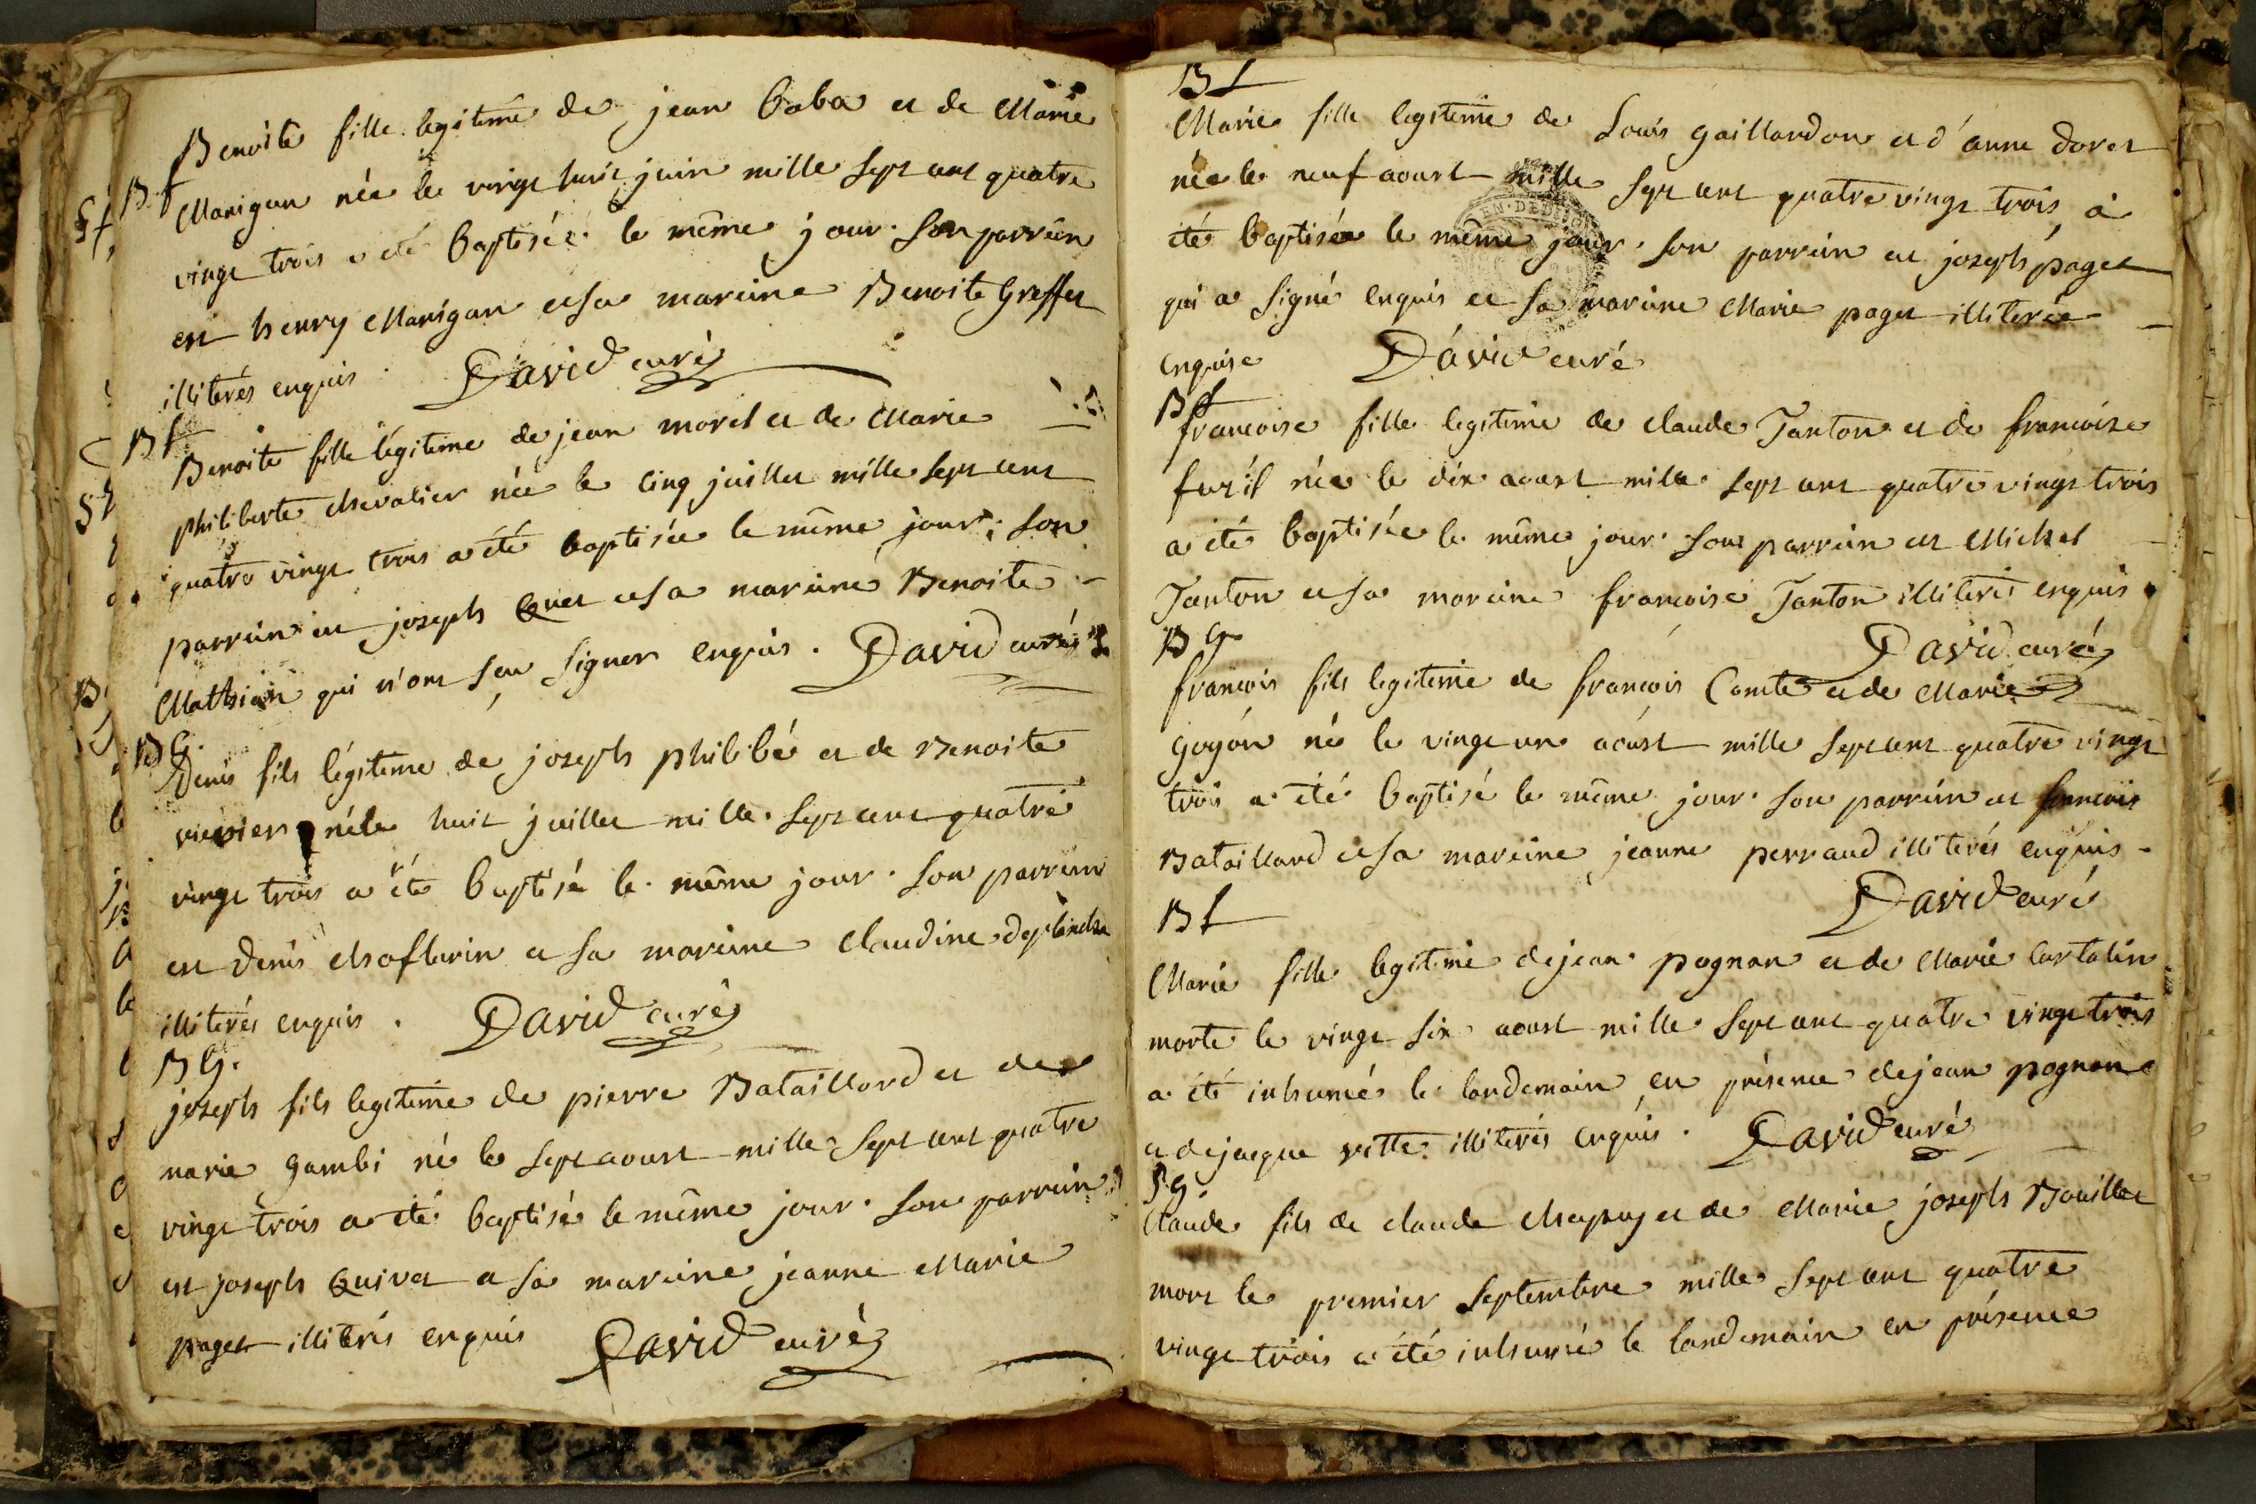 Bf
Benoite fille legitime de jean baba et de Marie
Marigan née le vingt huit juin mille sept cent quatre
vingt trois a été baptisée le même jour. Son parrain
est henry Marigan et sa maraine Benoite Greffet
illiterés enquis. David curé
Bf
Benoite fille légitime de jean morel et de Marie
philiberte chevalier née le cinq juillet mille sept cent
quatre vingt trois a été baptisée le même jour; son
parrain est joseph et sa maraine Benoite
qui n'ont sçu signer enquis. David curé
BG.
Denis fils légitime de joseph philibé et de Benoite
né le huit juillet mille sept cent quatre
vingt trois a été baptisé le même jour. Son parrain
est denis et sa maraine claudine
illiterés enquis. David curé
BG.
joseph fils legitime de pierre Bataillard et de
marie gambi né le sept aoust mille sept cent quatre
vingt trois a été baptisé le même jour. Son parrain
est joseph Quivet et sa maraine jeanne Marie
paget illiterés enquis David curé
Bf
Marie fille legitime de Louis gaillardon et d'anne doret
née le neuf aoust mille sept cent quatre vingt trois a
été baptisée le même jour. Son parrain est joseph paget
qui a signé enquis et sa maraine Marie paget illiterée
enquise David curé
Bf
francoise fille legitime de claude Janton et de francoise
née le dix aoust mille sept cent quatre vingt trois
a été baptisée le même jour. Son parrain est Michel
Janton et sa maraine francoise Janton illiterés enquis.
David curé
BG
francois fils legitime de francois Comte et de Marie
goyon né le vingt un aoust mille sept cent quatre vingt
trois a été baptisé le même jour. Son parrain est francois
Bataillard et sa maraine jeanne perraud illiterés enquis
David curé
Bf
Marie fille legitime de jean pognan et de Marie
morte le vingt six aoust mille sept cent quatre vingt trois
a été inhumé le landemain en présence de jean pognan
et de jacque vitte illiterés enquis. David curé
SG
Claude fils de claude chapuy et de Marie joseph Bouillet
mort le premier septembre mille sept cent quatre
vingt trois a été inhumé le landemain en présence